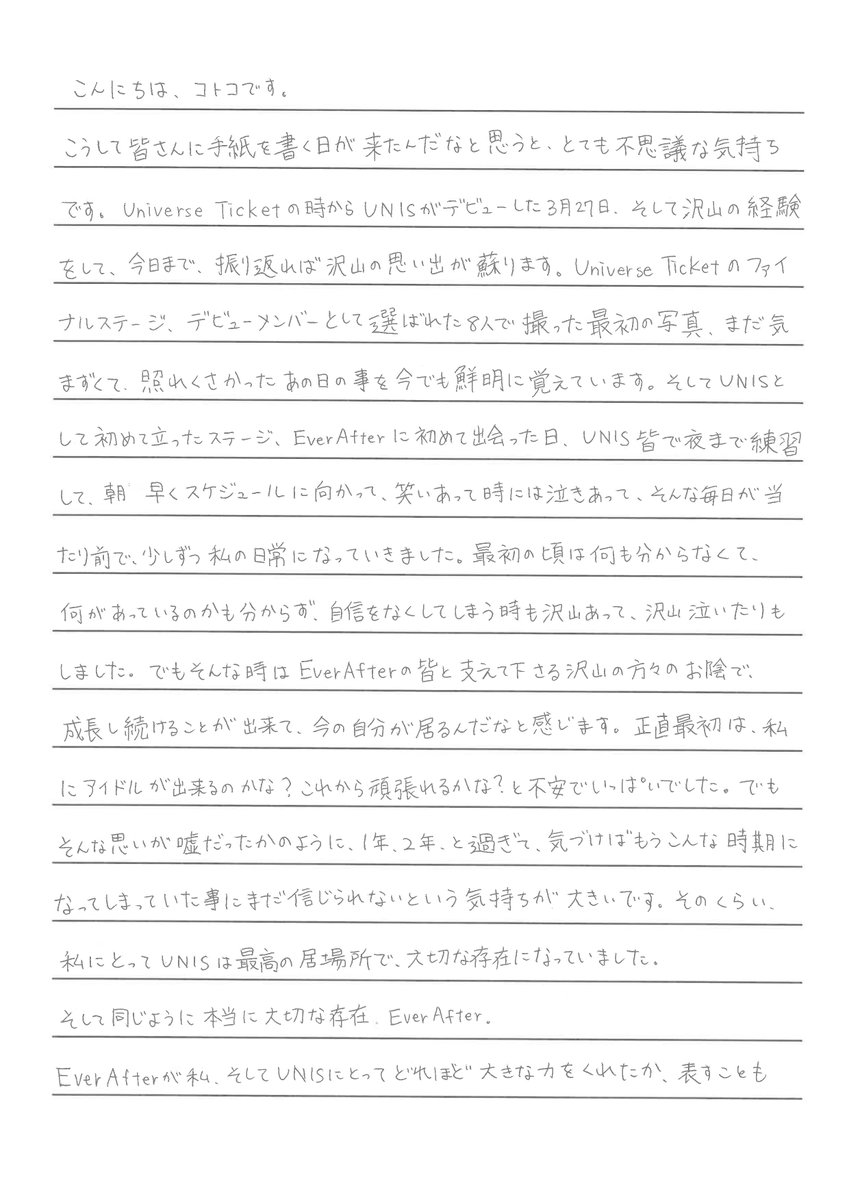 こんにちは、コトコです。
こうして皆さんに手紙を書く日が来たんだなと思うと、とても不思議な気持ち
です。Universe Ticketの時からUNISがデビューした3月27日、そして沢山の経験
をして、今日まで、振り返れば沢山の思い出が蘇ります。Universe Ticketのファイ
ナルステージ、デビューメンバーとして選ばれた8人で撮った最初の写真、まだ気
まずくて、照れくさかったあの日の事を今でも鮮明に覚えています。そしてUNISと
して初めて立ったステージ、EverAfterに初めて出会った日、UNIS皆で夜まで練習
して、朝 早くスケジュールに向かって、笑いあって時には泣きあって、そんな毎日が当
たり前で、少しずつ私の日常になっていきました。最初の頃は何も分からなくて、
何があっているのかも分からず、自信をなくしてしまう時も沢山あって、沢山泣いたりも
しました。でもそんな時はEverAfterの皆と支えて下さる沢山の方々のお陰で、
成長し続けることが出来て、今の自分が居るんだなと感じます。正直最初は、私
にアイドルが出来るのかな?これから頑張れるかな?と不安でいっぱいでした。でも
そんな思いが嘘だったかのように、1年、2年、と過ぎて、気づけばもうこんな時期に
なってしまっていた事にまだ信じられないという気持ちが大きいです。そのくらい、
私にとってUNISは最高の居場所で、大切な存在になっていました。
そして同じように本当に大切な存在、EverAfter.
EverAfterが私、そしてUNISにとってどれほど大きな力をくれたか、表すことも